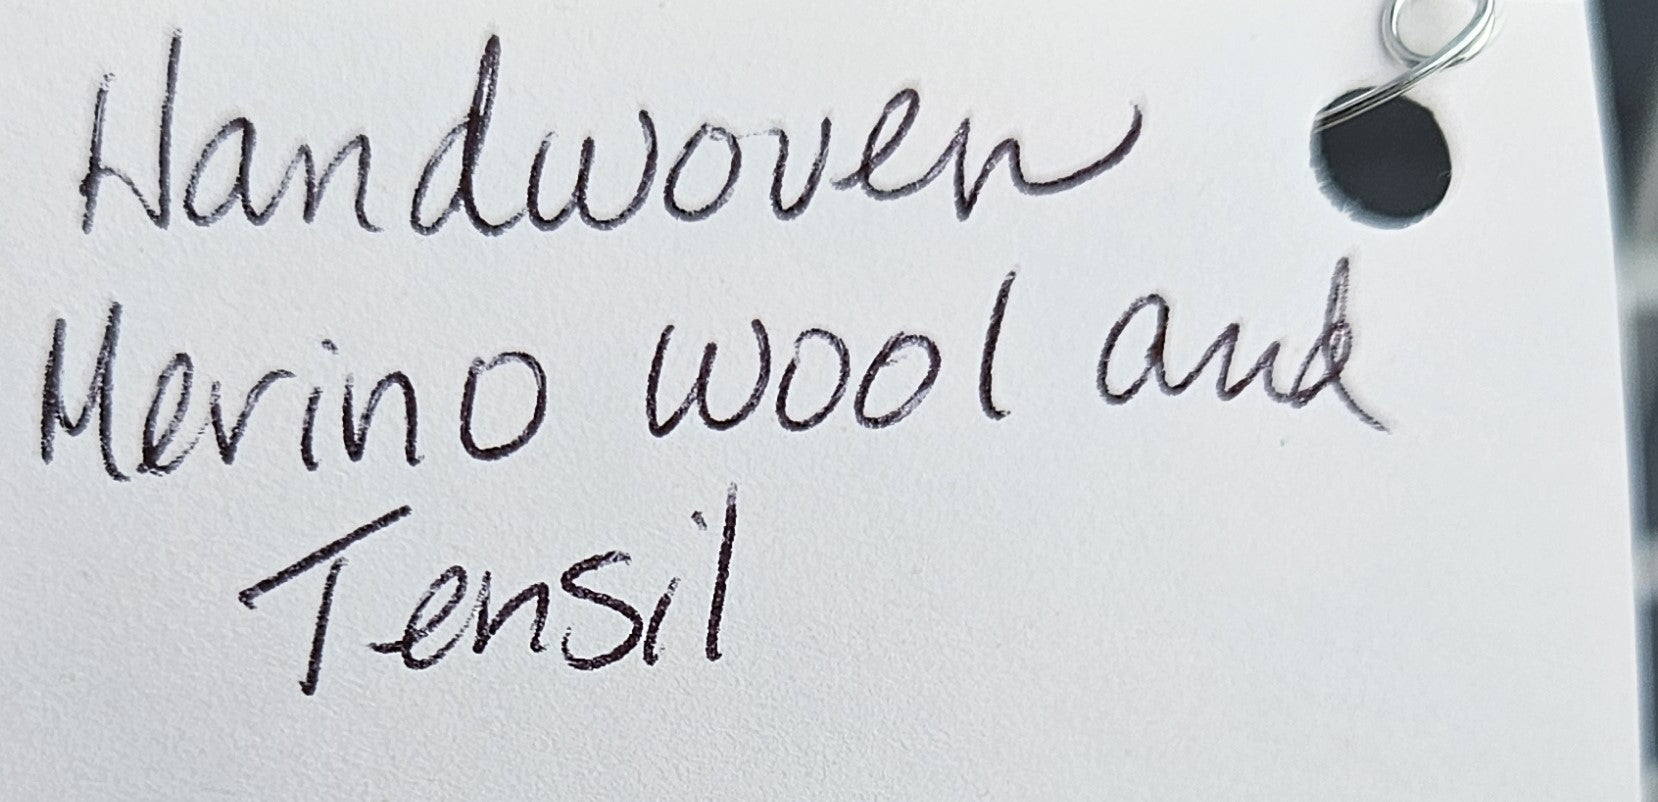 Handwoven
Merino wool and
Tensil